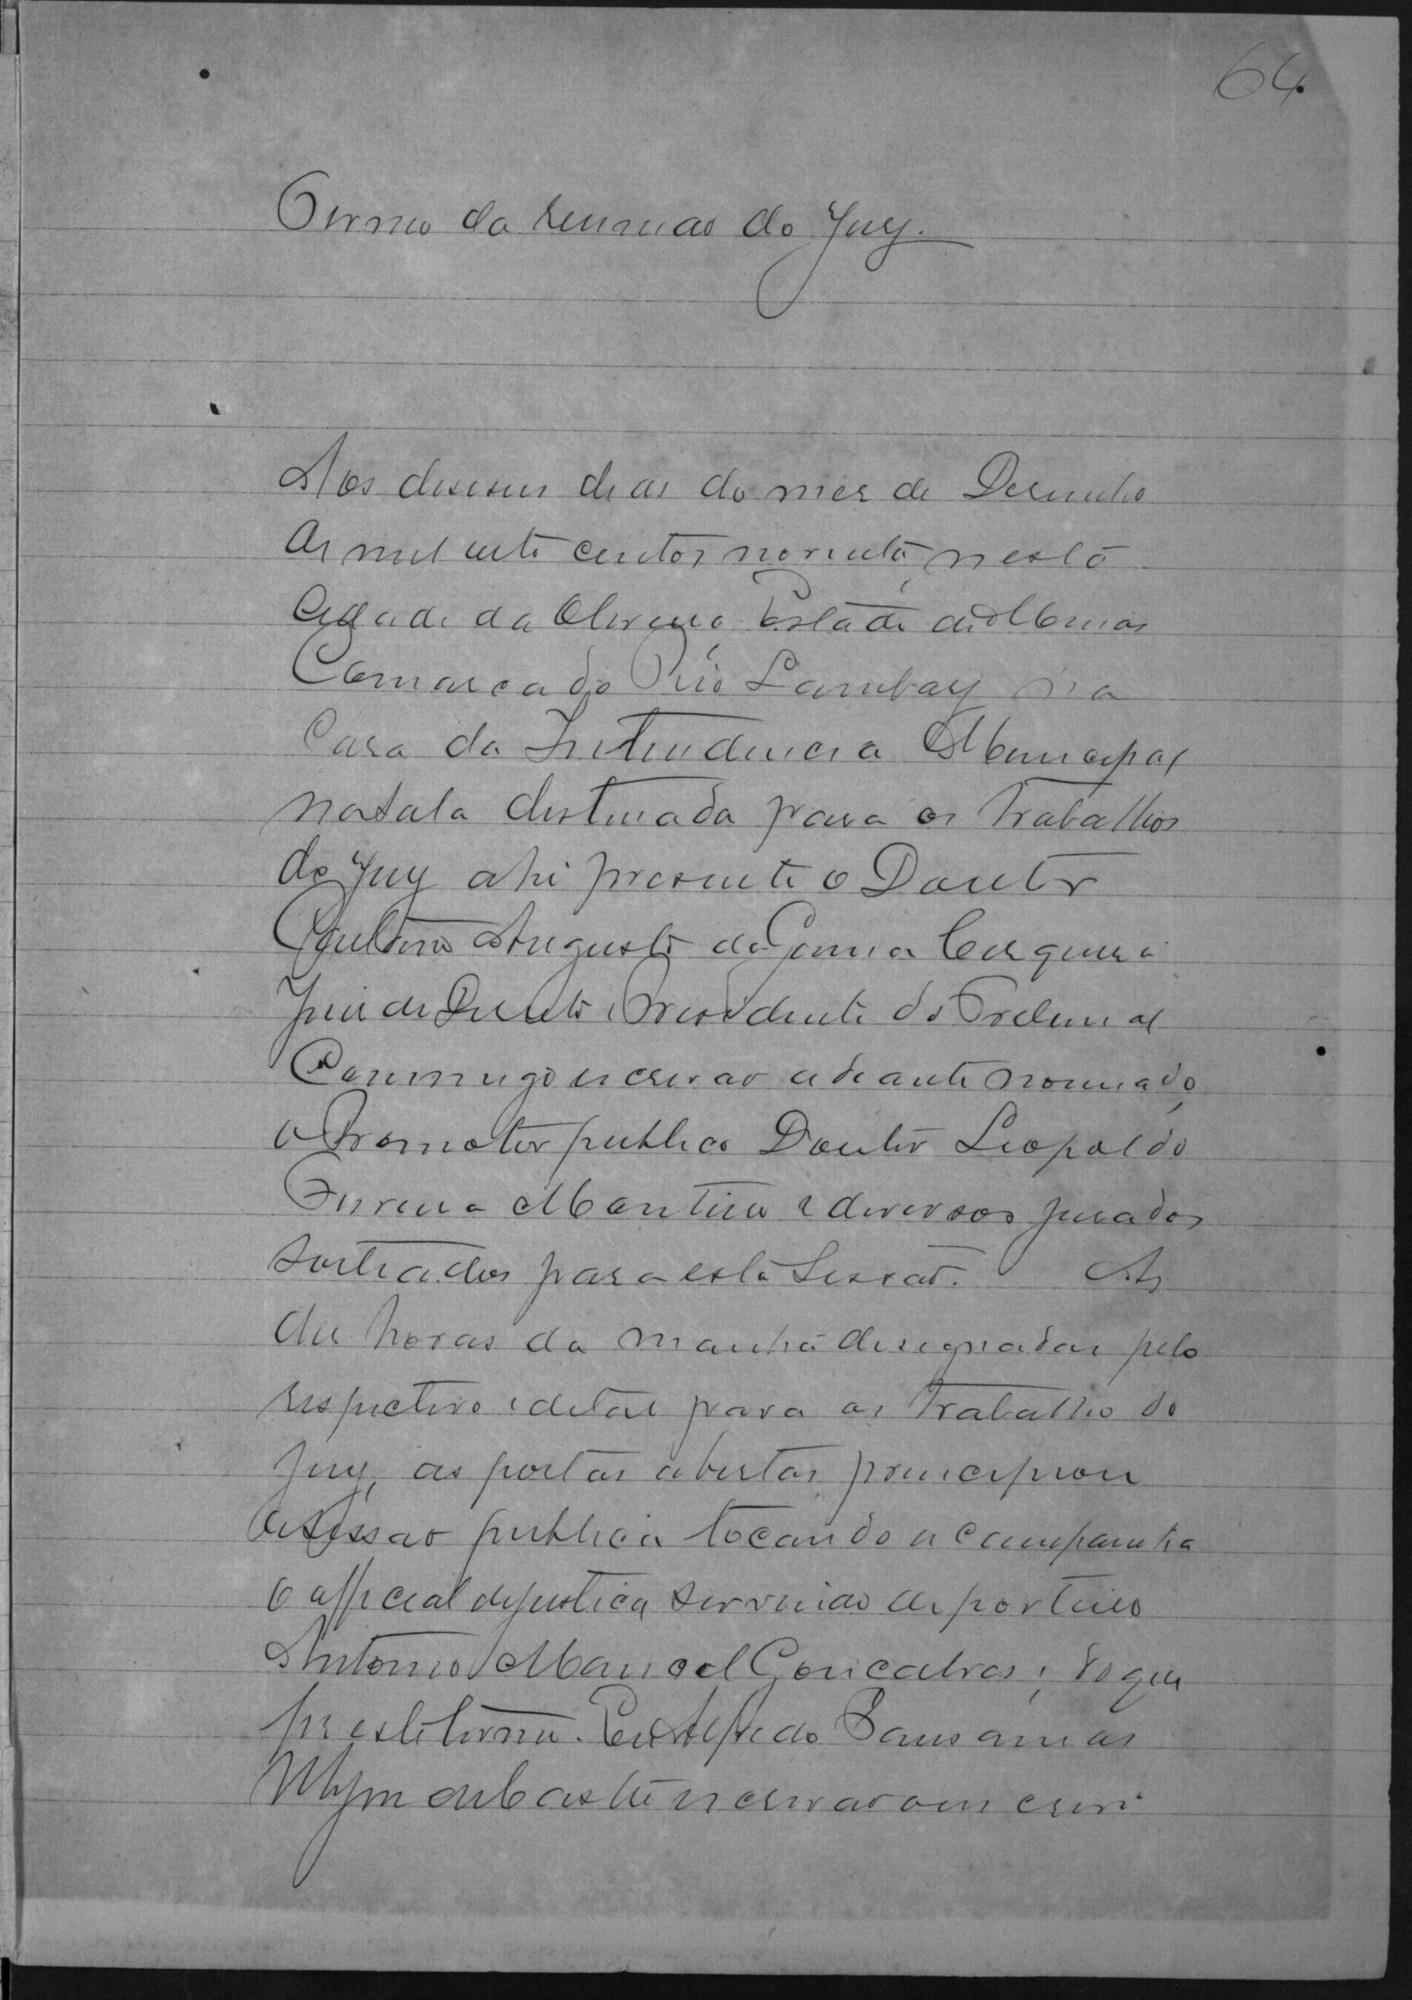 64
Termo da reuniao do Jury.
Aos deseseis dias do mes de Desembro
de mil oito centos noventa, nesta
Cidade da Oliveira, Estado de Minas
Comarca do Rio Lambary na
Casa da Intendencia Municipal
na sala destinada para os trabalhos
do Jury ahi presente o Doutor
Augusto da Gama Cerqueira
Juiz de Direito Presidente do Tribunal
Commigo escrivao adeante nomeado,
o Promotor publico Doutor Leopoldo
Monteiro e diversos jurados
sorteados para esta Sessao. As
dez horas da manhã designadas pelo
respectivo edital para os trabalho do
Jury, as portas abertas, principiou
a Sessao publica tocando a campainha
o official de justiça servindo de porteiro
Antonio Manoel Goncalves; do que
fiz este termo. Eu Alfredo
de Castro escrivao o escrevi